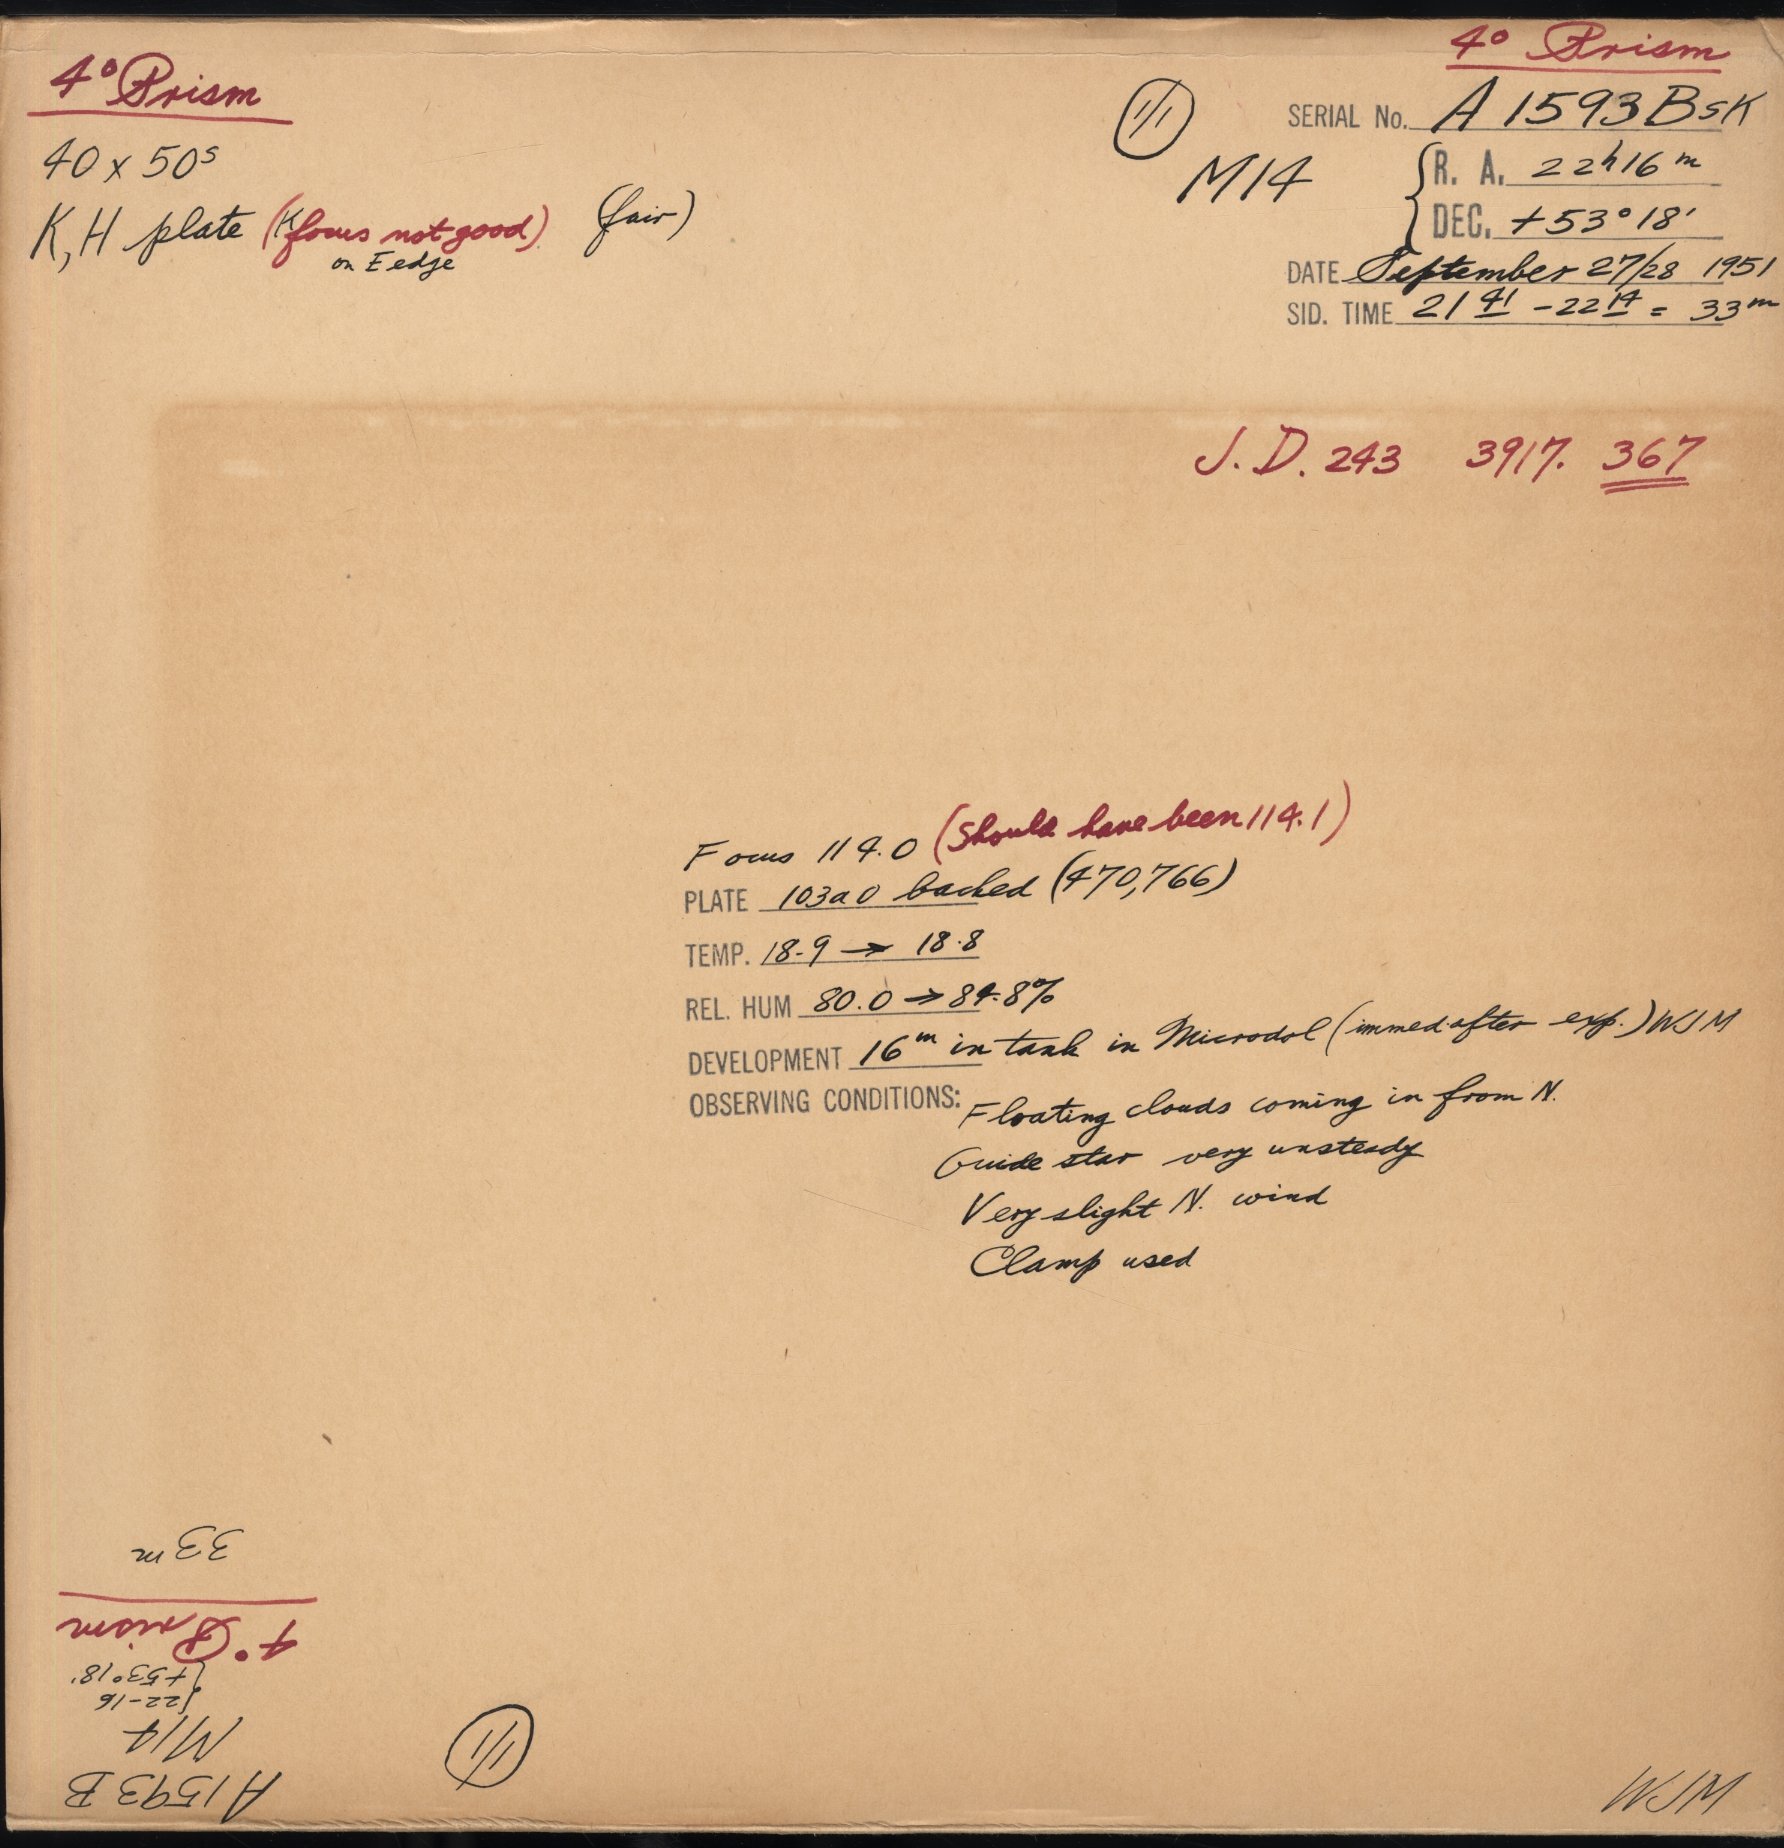 4° Prism
40 x 50s
K, H plate (K focus not good) (fair)
on E edge
4° Prism
1/1
SERIAL No. A 1593 BSK
M14
R. A. 22h16m
DEC. +53°18'
DATE September 27/28 1951
SID. TIME 21 41 - 22 14 = 33m
J. D. 243 3917. 367
Focus 114.0 (Should have been 114.1)
PLATE 103a0 backed (470,766)
TEMP. 18.9 → 18.8
REL. HUM 80.0 → 84.8%
DEVELOPMENT 16m in tank in Microdol (immed. after exp.) WJM
OBSERVING CONDITIONS: Floating clouds coming in from N.
Guide star very unsteady
Very slight N. wind
Clamp used
A1593 B
M14
22-16
+53°18'
4° Prism
33m
1/1
WJM